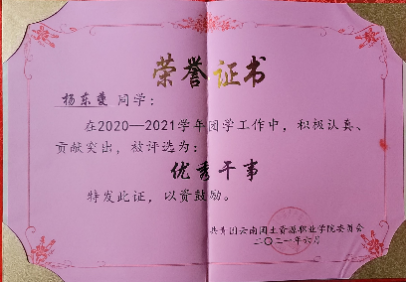 荣誉证书
杨东曼 同学：
在2020—2021学年团学工作中，积极认真、
贡献突出，被评选为：
优秀干事
特发此证，以资鼓励。
共青团云南国土资源职业学院委员会
二〇二一年六月